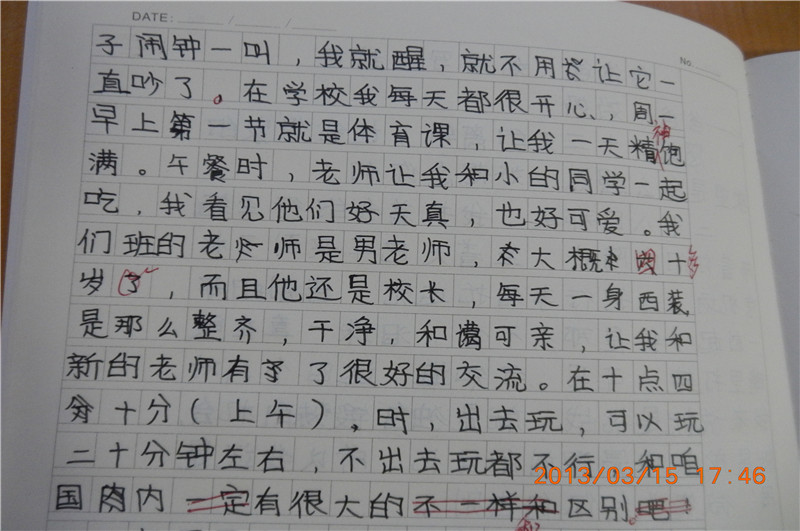 DATE: / /
No.
子闹钟一叫，我就醒，就不用让它一
直吵了。在学校我每天都很开心，周一
早上第一节就是体育课，让我一天精神饱
满。午餐时，老师让我和小的同学一起
吃，我看见他们好天真，也好可爱。我
们班的老师是男老师，大概四十多
岁了，而且他还是校长，每天一身西装
是那么整齐，干净，和蔼可亲，让我和
新的老师有了很好的交流。在十点四
十分（上午），时，出去玩，可以玩
二十分钟左右，不出去玩都不行，和咱
国内一定有很大的不一样和区别吧！
2013/03/15 17:46